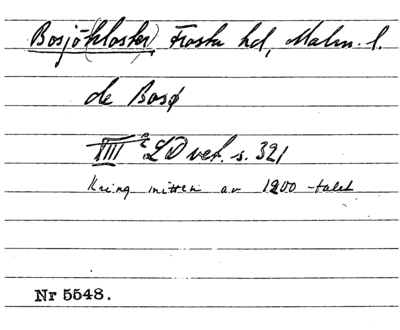 Bosjö(kloster), Frosta hd, Malm. l.
de Bosø
VIII e LD vet. s. 321
Kring mitten av 1200-talet
Nr 5548.